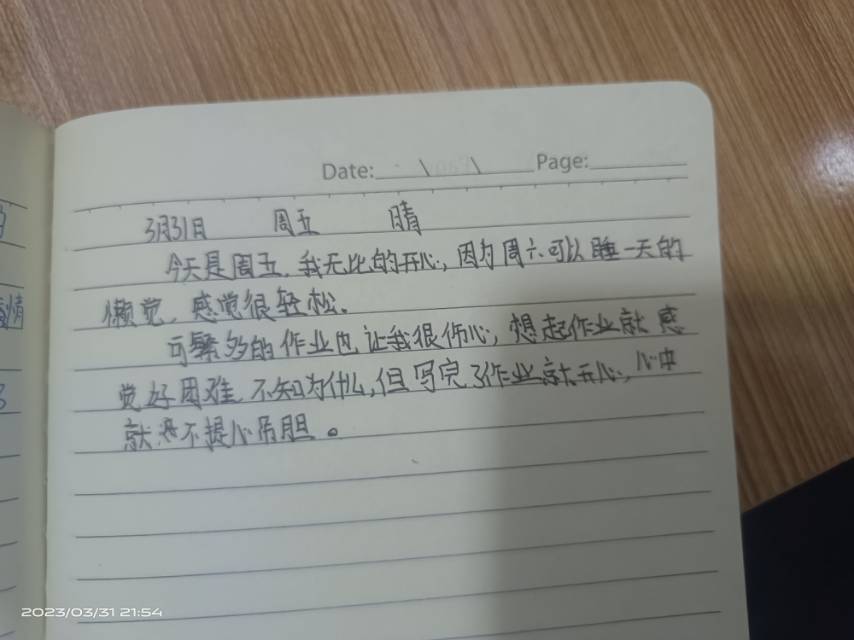 Date: \ \ Page:
3月31日 周五 晴
今天是周五，我无比的开心，因为周六可以睡一天的
懒觉，感觉很轻松.
可繁多的作业也让我很伤心，想起作业就感
觉好困难，不知为什么，但写完了作业就开心，心中
就 不提心吊胆。
情
2023/03/31 21:54